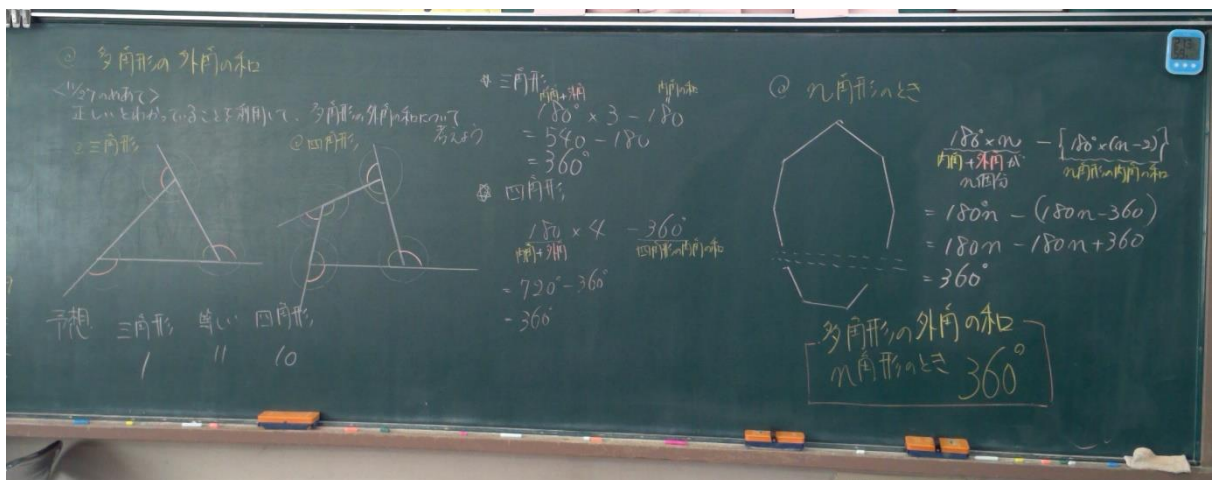 ◎ 多角形の外角の和
<11/27のめあて>
正しいとわかっていることを利用して、多角形の外角の和について
考えよう
◎三角形
◎四角形
予想 三角形 等しい 四角形
1 11 10
三角形
内角+外角 内角の和
180° × 3 - 180
= 540 - 180
= 360°
四角形
180 × 4 - 360°
内角+外角 四角形の内角の和
= 720° - 360°
= 360°
◎ n角形のとき
180°×n - {180°×(n-2)}
内角+外角が n角形の内角の和
n個分
= 180°n - (180n-360)
= 180n - 180n + 360
= 360°
多角形の外角の和
n角形のとき 360°